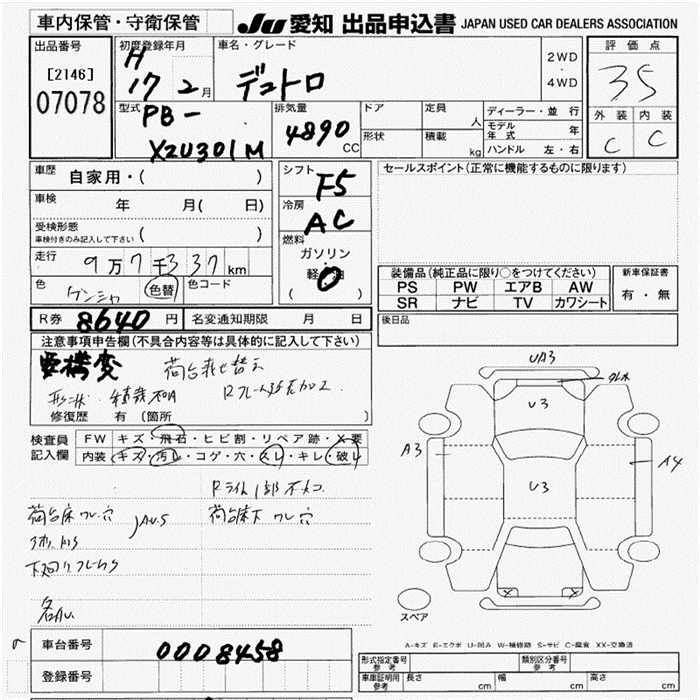 車内保管・守衛保管
JU 愛知 出品申込書 JAPAN USED CAR DEALERS ASSOCIATION
出品番号
[2146]
07078
初度登録年月
H
17 2月
車名・グレード
デュトロ
2WD
・
4WD
評価点
35
外装 内装
C C
型式
PB-
XZU301M
排気量
4890
CC
ドア
定員
人
形状
積載
kg
ディーラー・並行
モデル年式 年
ハンドル 左・右
車歴
自家用・( )
車検
年 月( 日)
受検形態
車検付きのみ記入して下さい ( )
走行
9万7千337km
色
ケンシャ
色替
色コード
シフト
F5
冷房
AC
燃料
ガソリン
・
軽油
( 0 )
セールスポイント(正常に機能するものに限ります)
装備品(純正品に限り○をつけてください)
PS PW エアB AW
SR ナビ TV カワシート
新車保証書
有・無
後日品
R券 8640 円
名変通知期限 月 日
注意事項申告欄(不具合内容等は具体的に記入して下さい)
要構変
形状 積載 不明
修復歴 有(箇所 )
検査員
記入欄
FW キズ・飛石・ヒビ割・リペア跡・X要
内装 キズ・汚レ・コゲ・穴・スレ・キレ・破レ
荷台床ワレ穴
荷台床下ワレ穴
UA3
U3
A3
U3
A4
スペア
A-キズ E-エクボ U-凹み W-補修跡 S-サビ C-腐食 XX-交換済
車台番号
0008458
登録番号
形式指定番号
参考
類別区分番号
参考
車庫証明用
参考
長さ cm
幅 cm
高さ cm